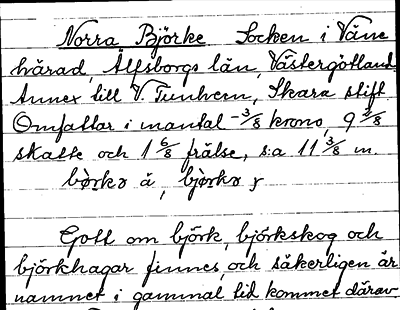 Norra Björke Socken i Väne
härad, Älfsborgs län, Västergötland.
Annex till V. Tunhem, Skara stift.
Omfattar i mantal 3/8 krono, 9 2/8
skatte och 1 6/8 frälse, s:a 11 3/8 m.
bø̀rkə å, bjø̀rkə y
Gott om björk, björkskog och
björkhagar finnes, och säkerligen är
namnet i gammal tid kommet därav.